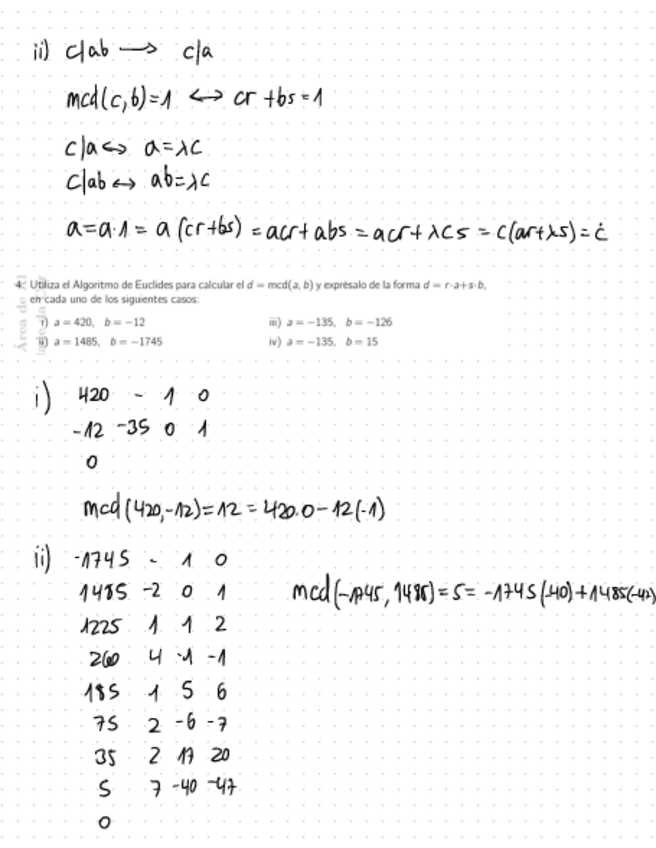 ii) c|ab → c|a
mcd(c,b)=1 ↔ cr+bs=1
c|a ↔ a=λc
c|ab ↔ ab=λc
a=a·1= a(cr+bs) = acr+abs = acr+λcs = c(ar+λs)=ċ
4. Utiliza el Algoritmo de Euclides para calcular el d = mcd(a, b) y exprésalo de la forma d = r·a+s·b,
en cada uno de los siguientes casos:
i) a = 420, b = −12 iii) a = −135, b = −126
ii) a = 1485, b = −1745 iv) a = −135, b = 15
Área de
i) 420 - 1 0
-12 -35 0 1
0
mcd(420,-12)=12=420·0-12(-1)
ii) -1745 - 1 0
1485 -2 0 1 mcd(-1745, 1485)=5= -1745(-40)+1485(-47)
1225 1 1 2
260 4 -1 -1
185 1 5 6
75 2 -6 -7
35 2 17 20
5 7 -40 -47
0